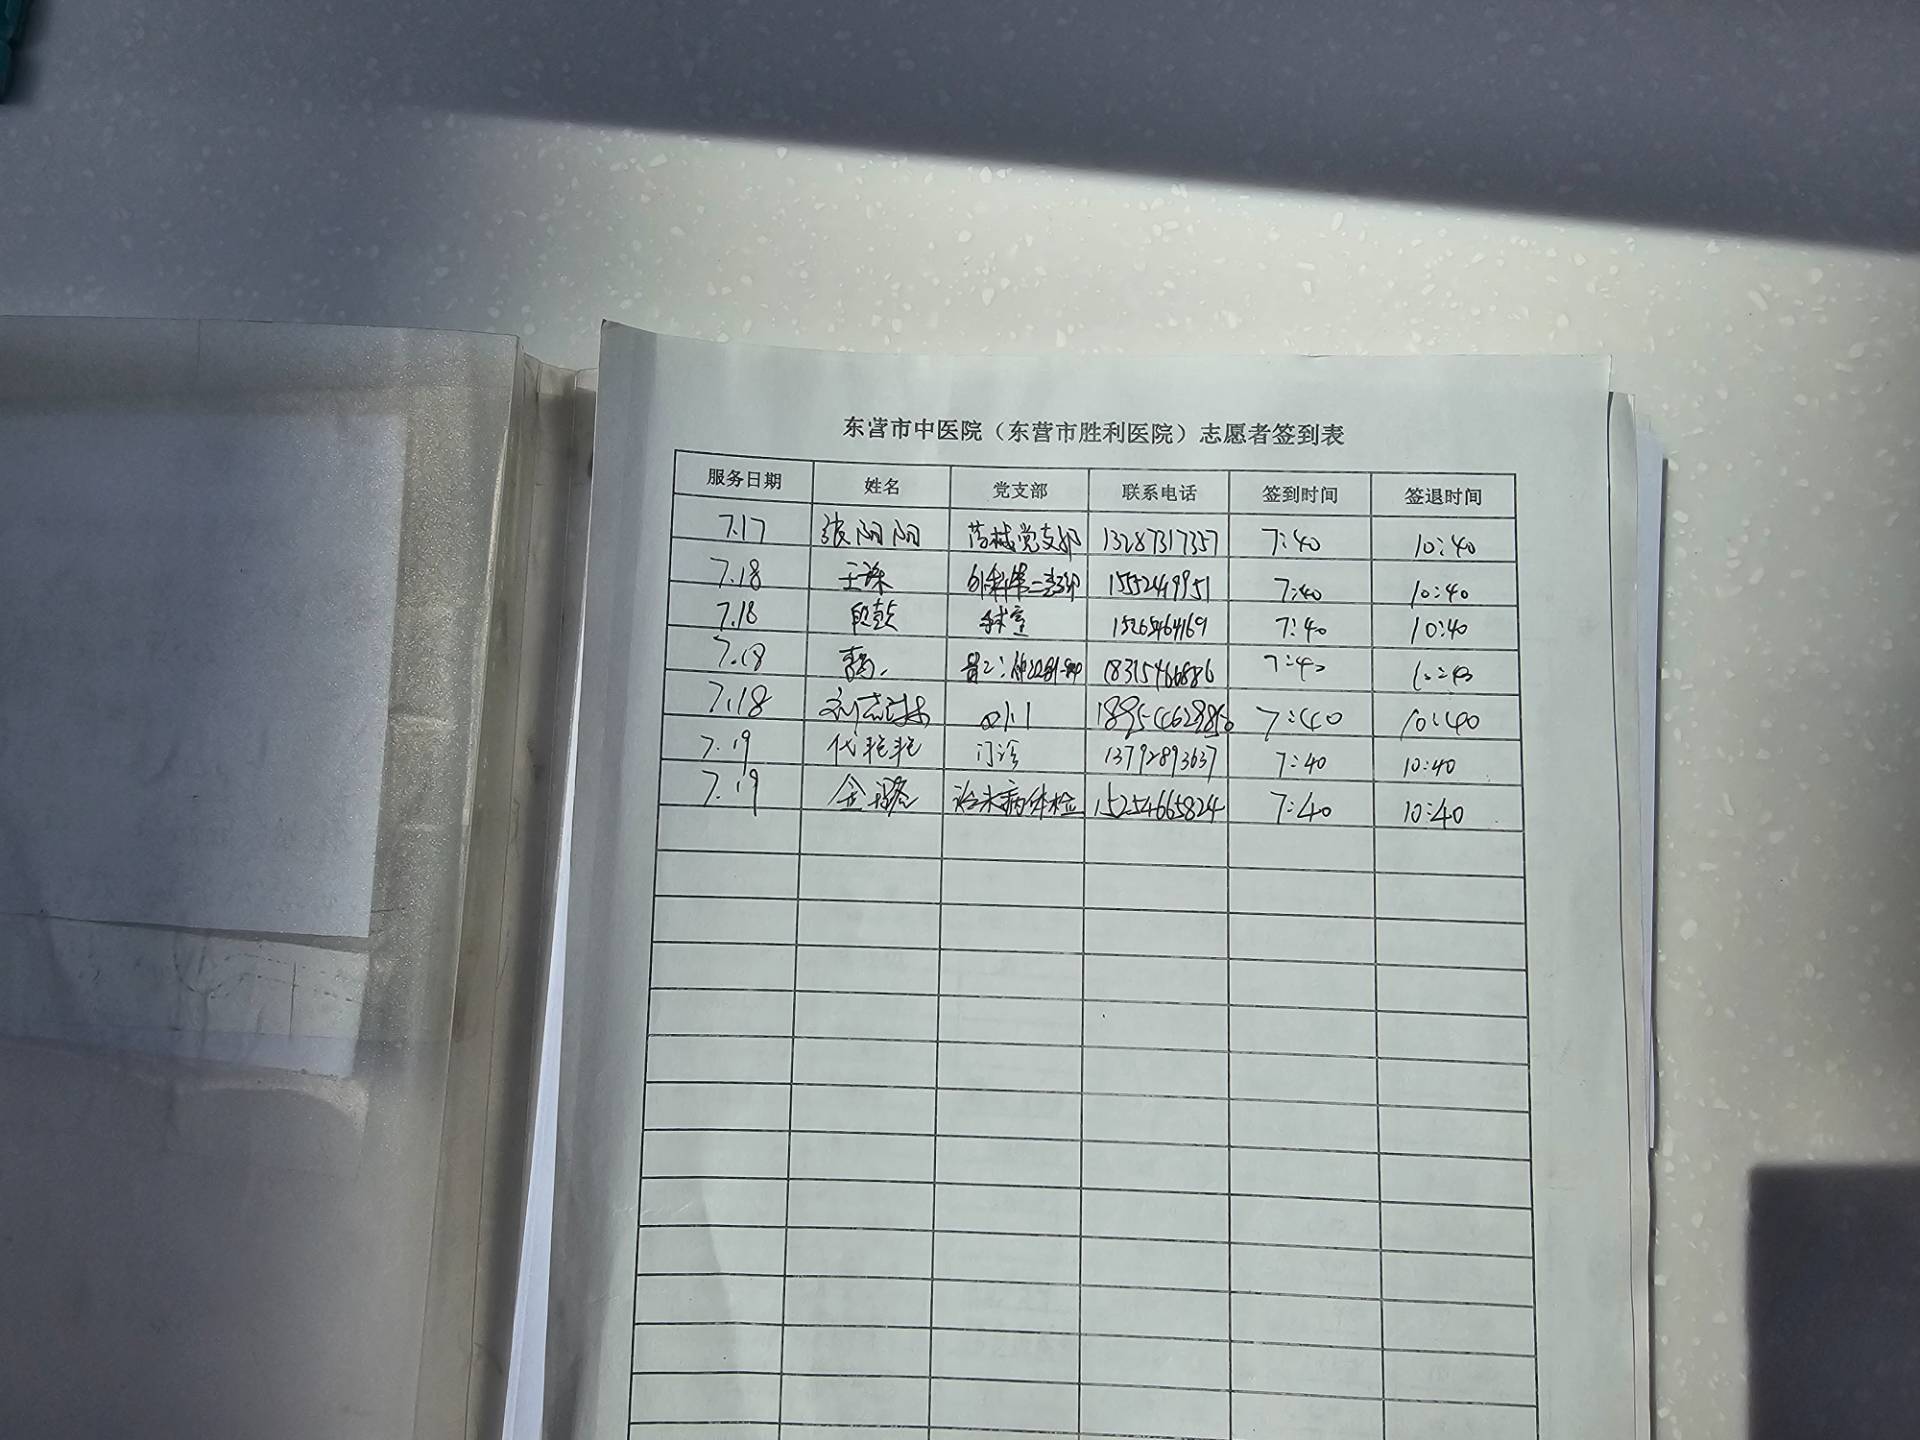 东营市中医院（东营市胜利医院）志愿者签到表
服务日期 姓名 党支部 联系电话 签到时间 签退时间
7.17 张阳阳 药械党支部 13287317357 7:40 10:40
7.18 外科第二支部 7:40 10:40
7.18 段彭 15265464169 7:40 10:40
7.18 18315466886 7:40
7.18 7:40 10:40
7.19 代艳艳 门诊 13792893637 7:40 10:40
7.19 治未病体检 15254665824 7:40 10:40